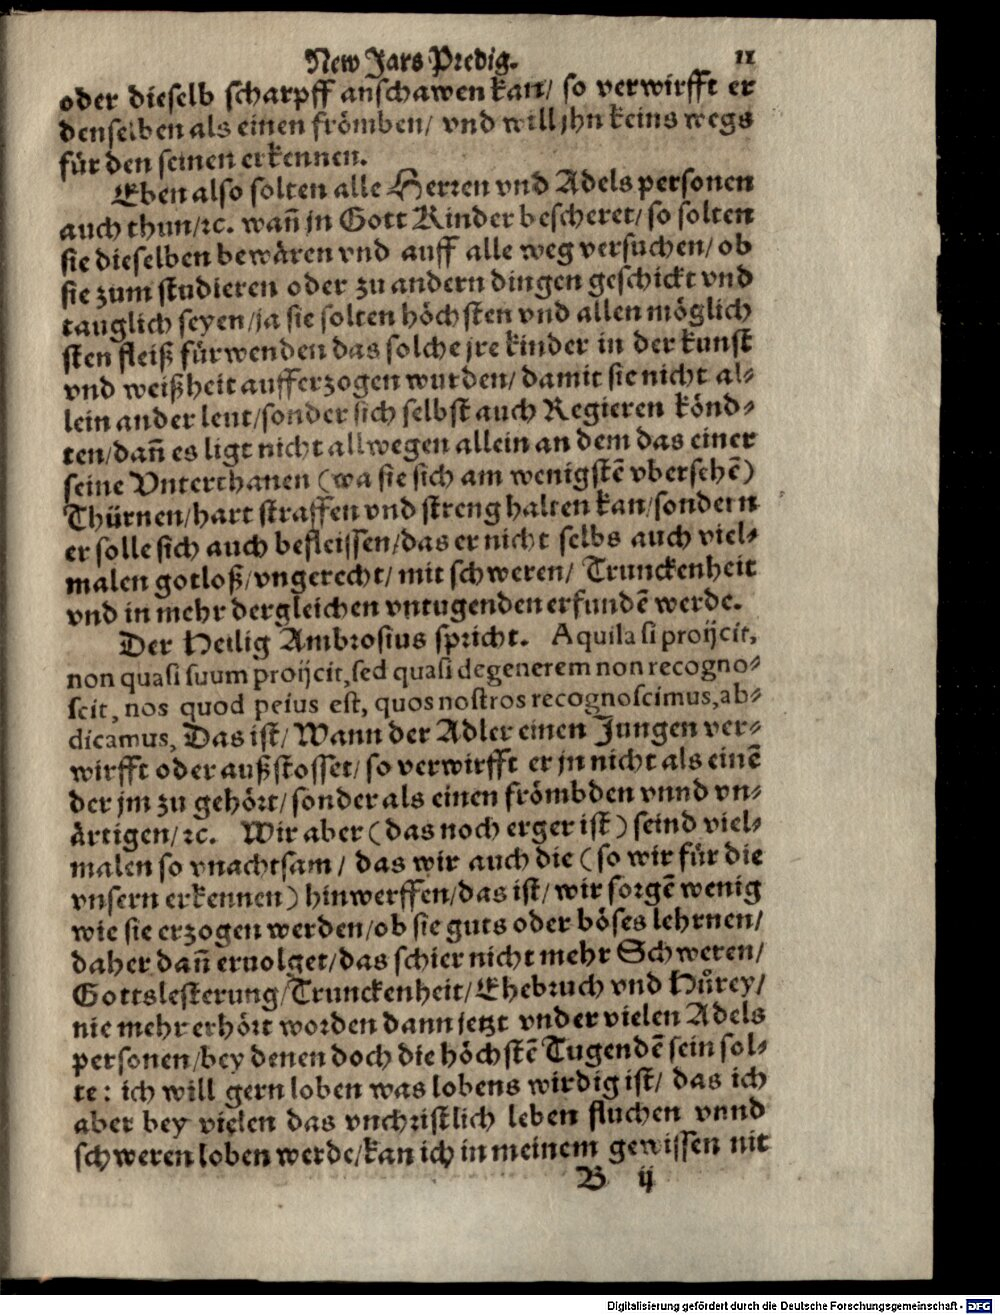 New Jars Predig. 11
oder dieselb scharpff anschawen kan/ so verwirfft er
denselben als einen frömben/ vnd will jhn keins wegs
für den seinen erkennen.
Eben also solten alle Herren vnd Adels personen
auch thun/ꝛc. wañ jn Gott Kinder bescheret/ so solten
sie dieselben bewären vnd auff alle weg versuchen/ ob
sie zum studieren oder zu andern dingen geschickt vnd
tauglich seyen/ja sie solten höchsten vnd allen möglich
sten fleiß fürwenden das solche jre kinder in der kunst
vnd weißheit aufferzogen wurden/ damit sie nicht al⸗
lein ander leut/sonder sich selbst auch Regieren könd⸗
ten/dañ es ligt nicht allwegen allein an dem das einer
seine Vnterthanen (wa sie sich am wenigstē vbersehē)
Thürnen/hart straffen vnd streng halten kan/sondern
er solle sich auch befleissen/das er nicht selbs auch viel⸗
malen gotloß/vngerecht/ mit schweren/ Trunckenheit
vnd in mehr dergleichen vntugenden erfundē werde.
Der Heilig Ambrosius spricht. Aquila si proijcit,
non quasi suum proijcit, sed quasi degenerem non recogno⸗
scit, nos quod peius est, quos nostros recognoscimus, ab⸗
dicamus, Das ist/ Wann der Adler einen Jungen ver⸗
wirfft oder außstosset/ so verwirfft er jn nicht als einē
der jm zu gehört/ sonder als einen frömbden vnnd vn⸗
ärtigen/ꝛc. Wir aber (das noch erger ist) seind viel⸗
malen so vnachtsam/ das wir auch die (so wir für die
vnsern erkennen) hinwerffen/das ist/ wir sorgē wenig
wie sie erzogen werden/ob sie guts oder böses lehrnen/
daher dañ eruolget/das schier nicht mehr Schweren/
Gottslesterung/Trunckenheit/Ehebruch vnd Hůrey/
nie mehr erhört worden dann jetzt vnder vielen Adels
personen/bey denen doch die höchstē Tugendē sein sol⸗
te: ich will gern loben was lobens wirdig ist/ das ich
aber bey vielen das vnchristlich leben fluchen vnnd
schweren loben werde/kan ich in meinem gewissen nit
B ij
Digitalisierung gefördert durch die Deutsche Forschungsgemeinschaft - DFG